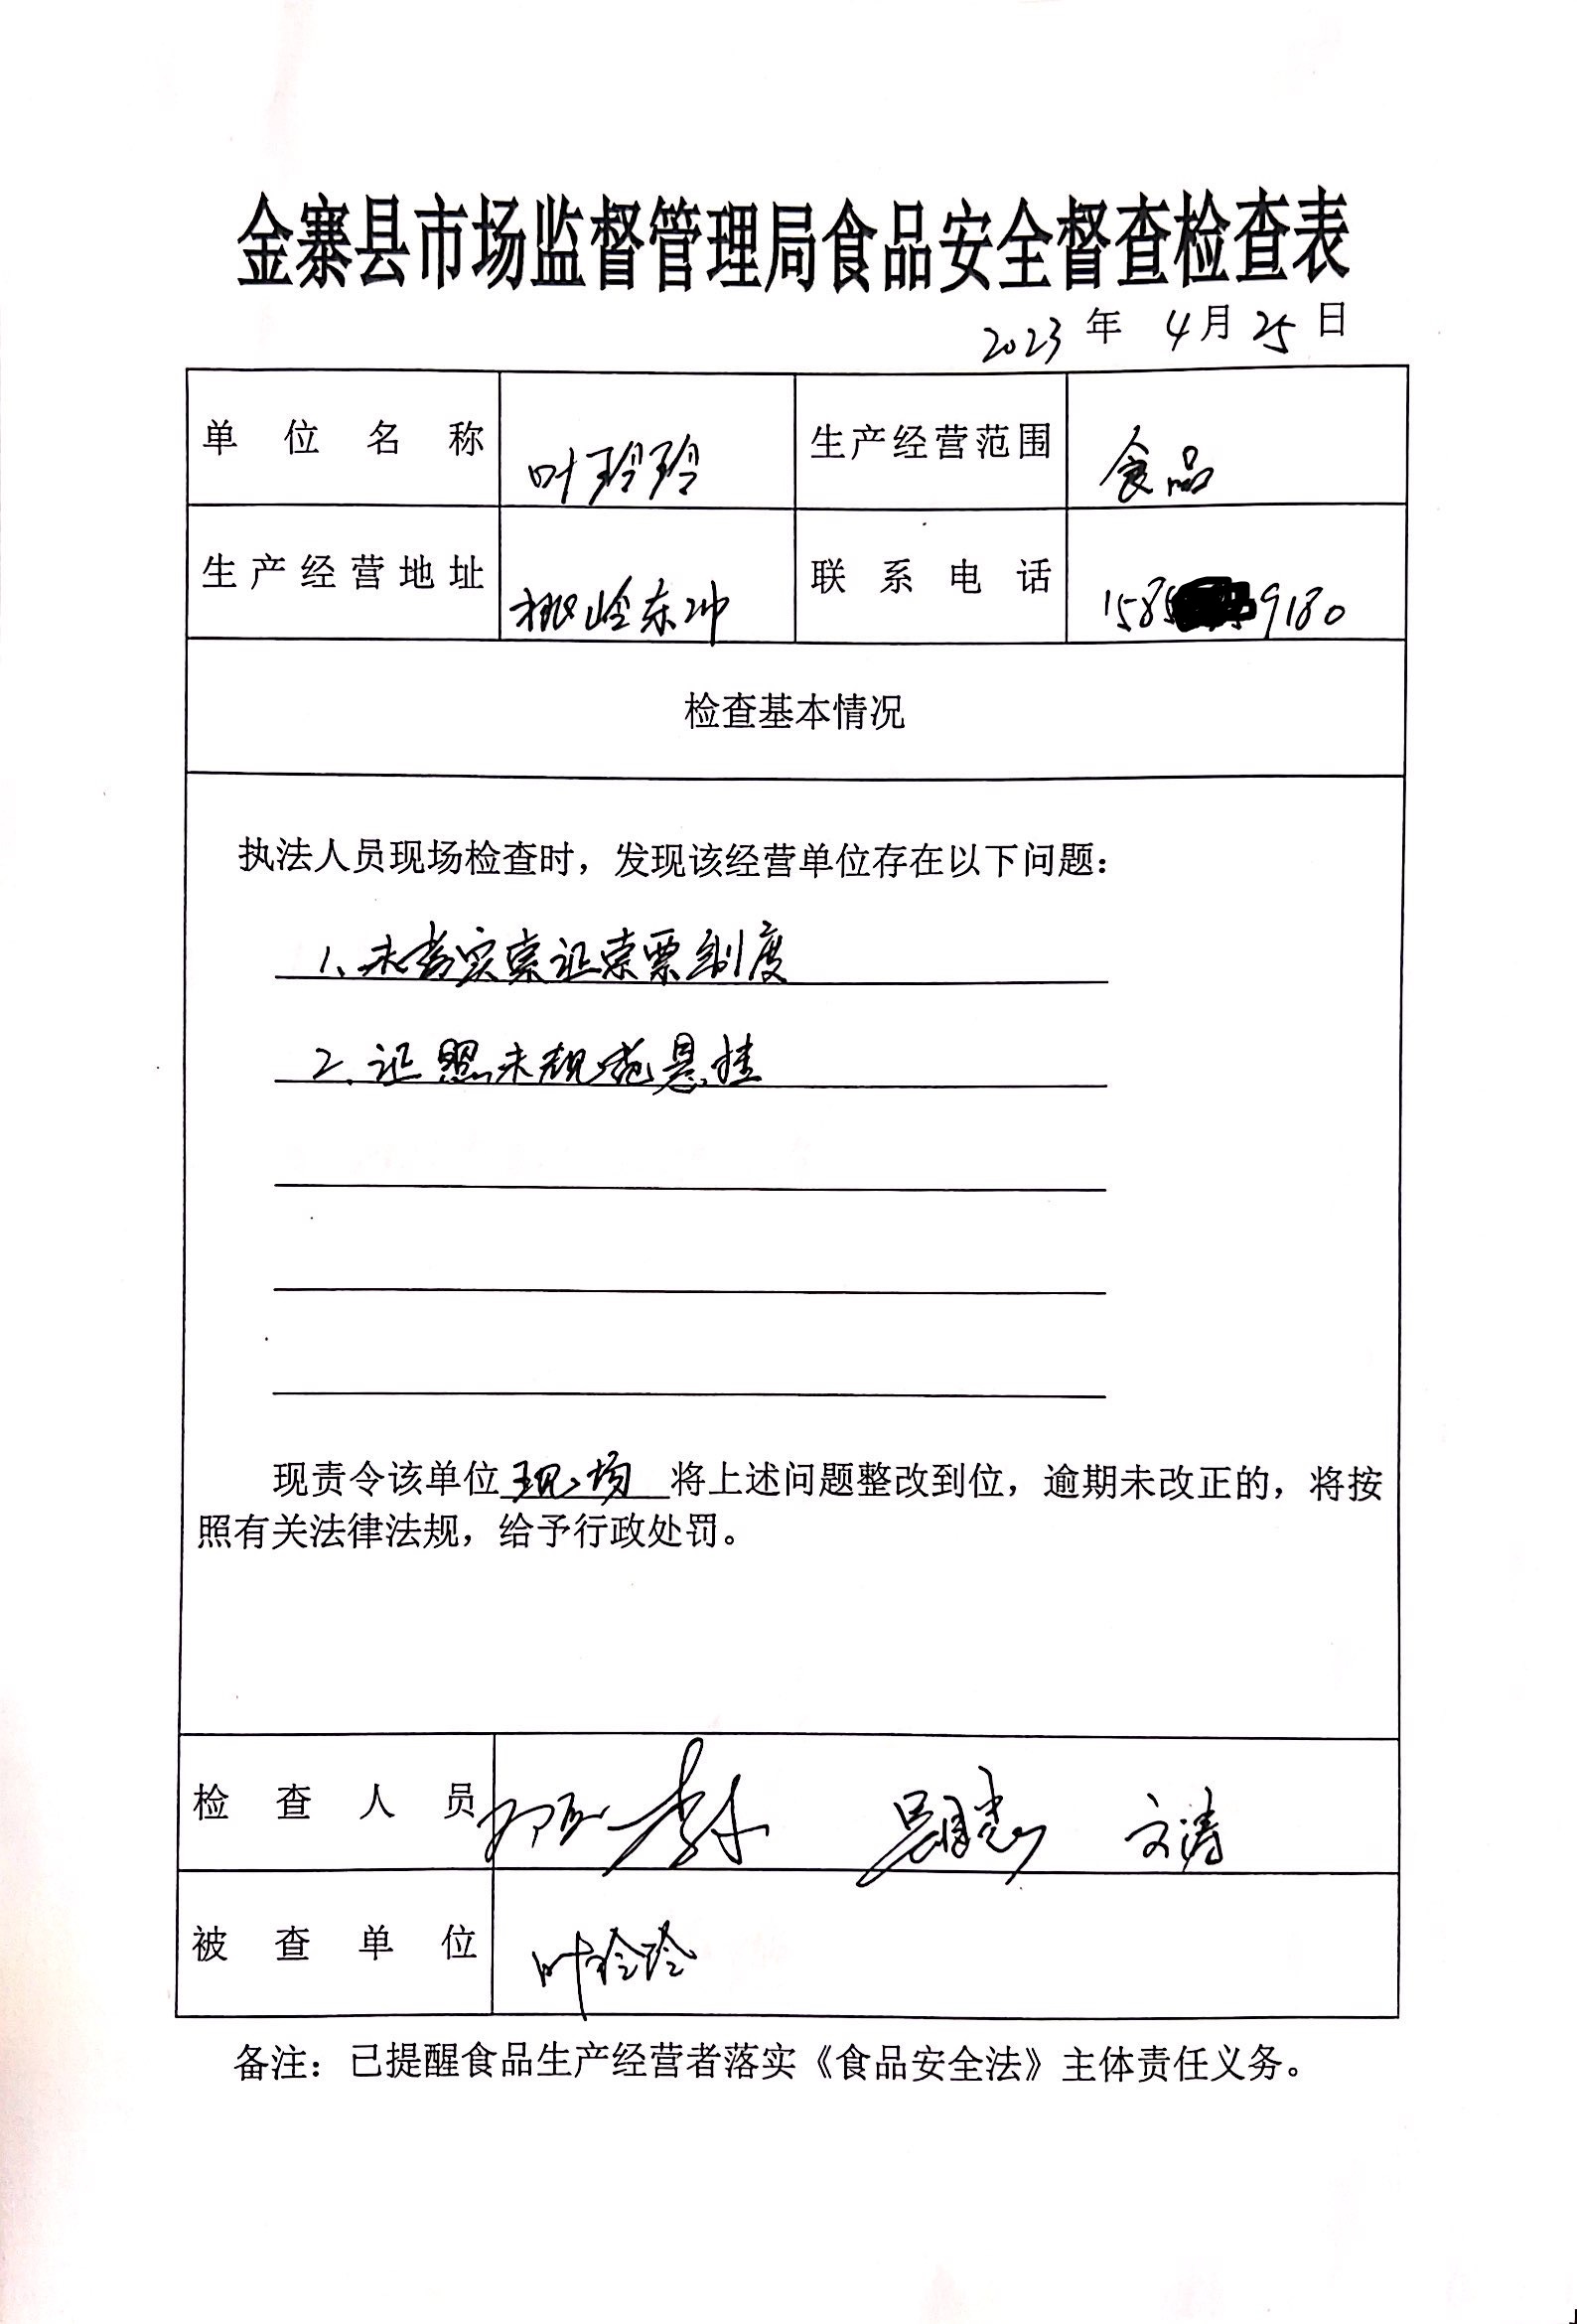 金寨县市场监督管理局食品安全督查检查表
2023 年 4 月 25 日
单位名称 叶玲玲 生产经营范围 食品
生产经营地址 桃岭东冲 联系电话 1585 9180
检查基本情况
执法人员现场检查时，发现该经营单位存在以下问题：
1、未落实索证索票制度
2、证照未规范悬挂
现责令该单位现场将上述问题整改到位，逾期未改正的，将按
照有关法律法规，给予行政处罚。
检查人员 文涛
被查单位 叶玲玲
备注：已提醒食品生产经营者落实《食品安全法》主体责任义务。